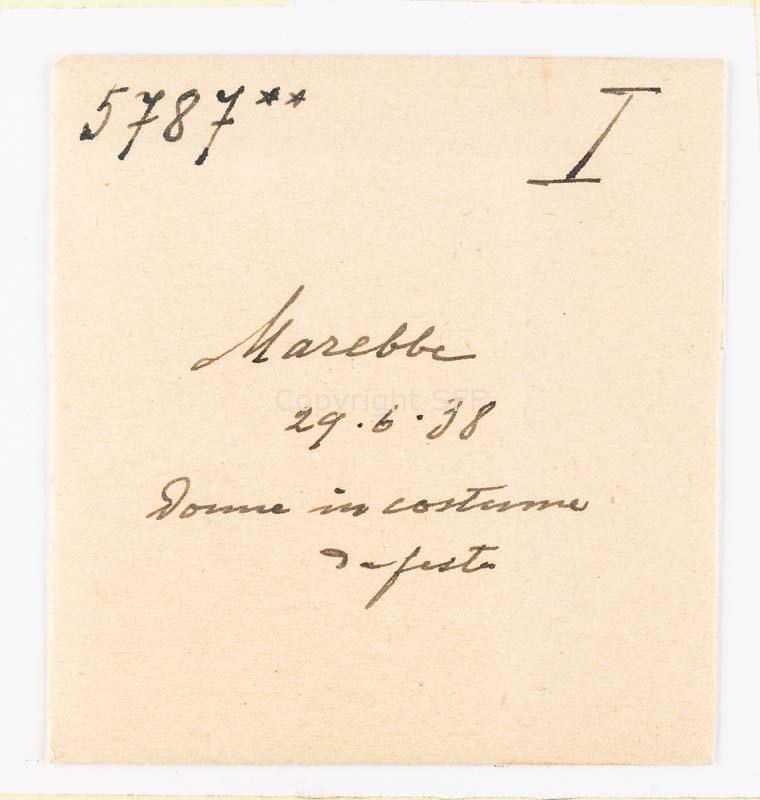 5787** I
Marebbe
Copyright SFF
29.6.38
Donne in costume
da festa